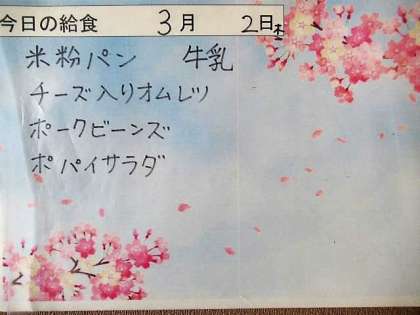 今日の給食 3月 2日木
米粉パン 牛乳
チーズ入りオムレツ
ポークビーンズ
ポパイサラダ